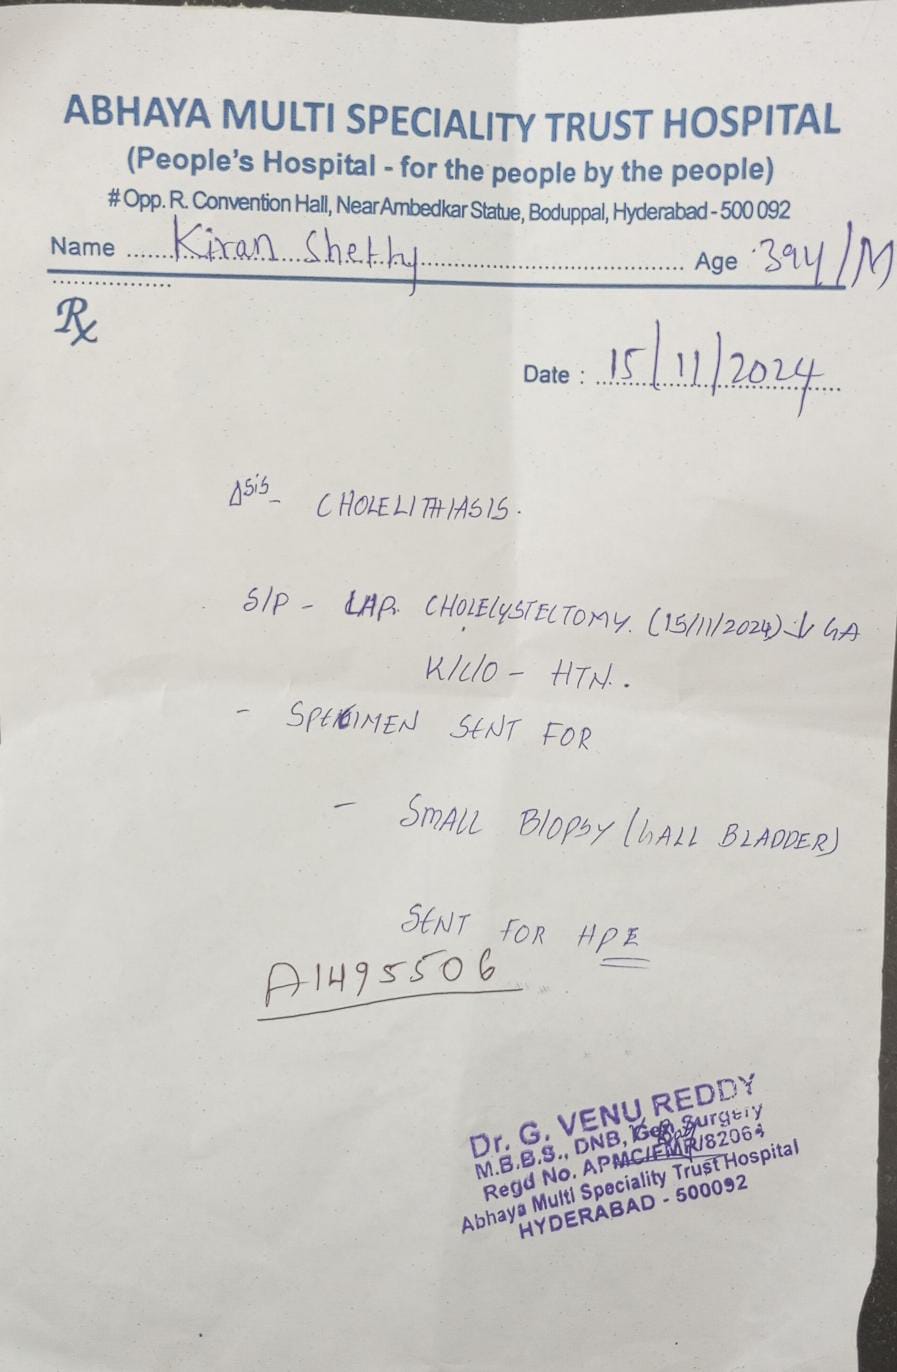 ABHAYA MULTI SPECIALITY TRUST HOSPITAL
(People's Hospital - for the people by the people)
# Opp. R. Convention Hall, Near Ambedkar Statue, Boduppal, Hyderabad - 500 092
Name Kiran Shetty Age 39y/M
Rx
Date : 15/11/2024
Δsis - CHOLELITHIASIS.
S/P - LAP. CHOLECYSTECTOMY. (15/11/2024) ↓ GA
K/C/O - HTN.
- SPECIMEN SENT FOR
- SMALL BIOPSY (GALL BLADDER)
SENT FOR HPE
A1495506
Dr. G. VENU REDDY
M.B.B.S., DNB, Gen Surgery
Regd No. APMC/FMR/82064
Abhaya Multi Speciality Trust Hospital
HYDERABAD - 500092